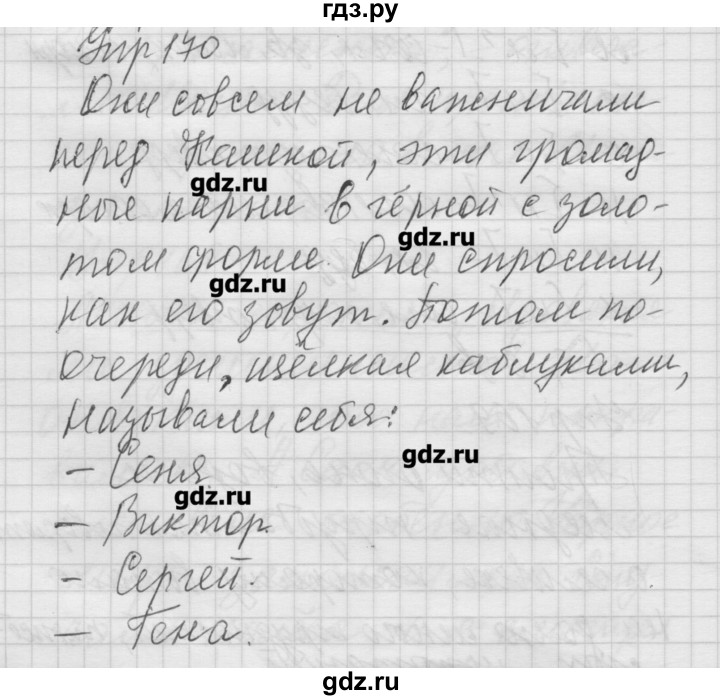 гдз.ру
Упр 170
Они совсем не важничали
перед Кешкой, эти громад-
gdz.ru
ные парни в чёрной с золо-
gdz.ru
том форме. Они спросили,
gdz.ru
как его зовут. Потом по-
очереди, щёлкая каблуками,
называли себя:
gdz.ru
– Сеня.
gdz.ru
– Виктор.
– Сергей.
– Гена.
gdz.ru